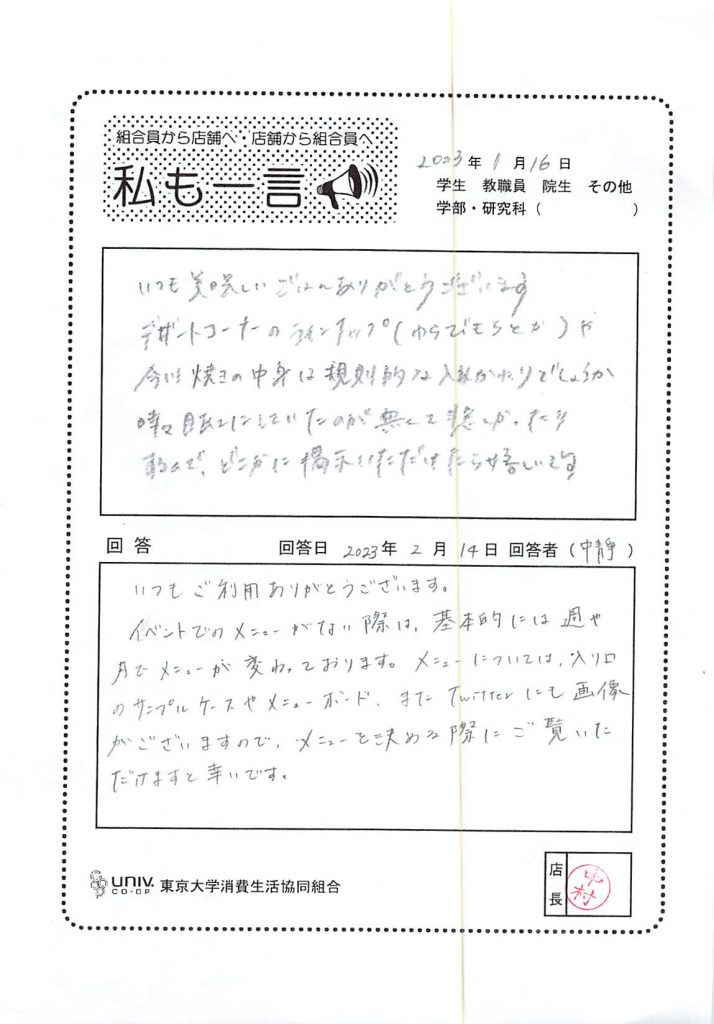 組合員から店舗へ・店舗から組合員へ
私も一言
2023年1月16日
学生 教職員 院生 その他
学部・研究科( )
いつも美味しいごはんありがとうございます
デザートコーナーのラインナップ(わらびもちとか)や
今川焼きの中身は規則的な入れかわりでしょうか
時々目あてにしていたのが無くて悲しかったり
するので、どこかに掲示いただけたら嬉しいです
回答 回答日 2023年2月14日 回答者(中静)
いつもご利用ありがとうございます。
イベントでのメニューがない際は、基本的には週や
月でメニューが変わっております。メニューについては、入り口
のサンプルケースやメニューボード、また Twitterにも画像
がございますので、メニューを決める際にご覧いた
だけますと幸いです。
UNIV. CO-OP 東京大学消費生活協同組合
店長 中村